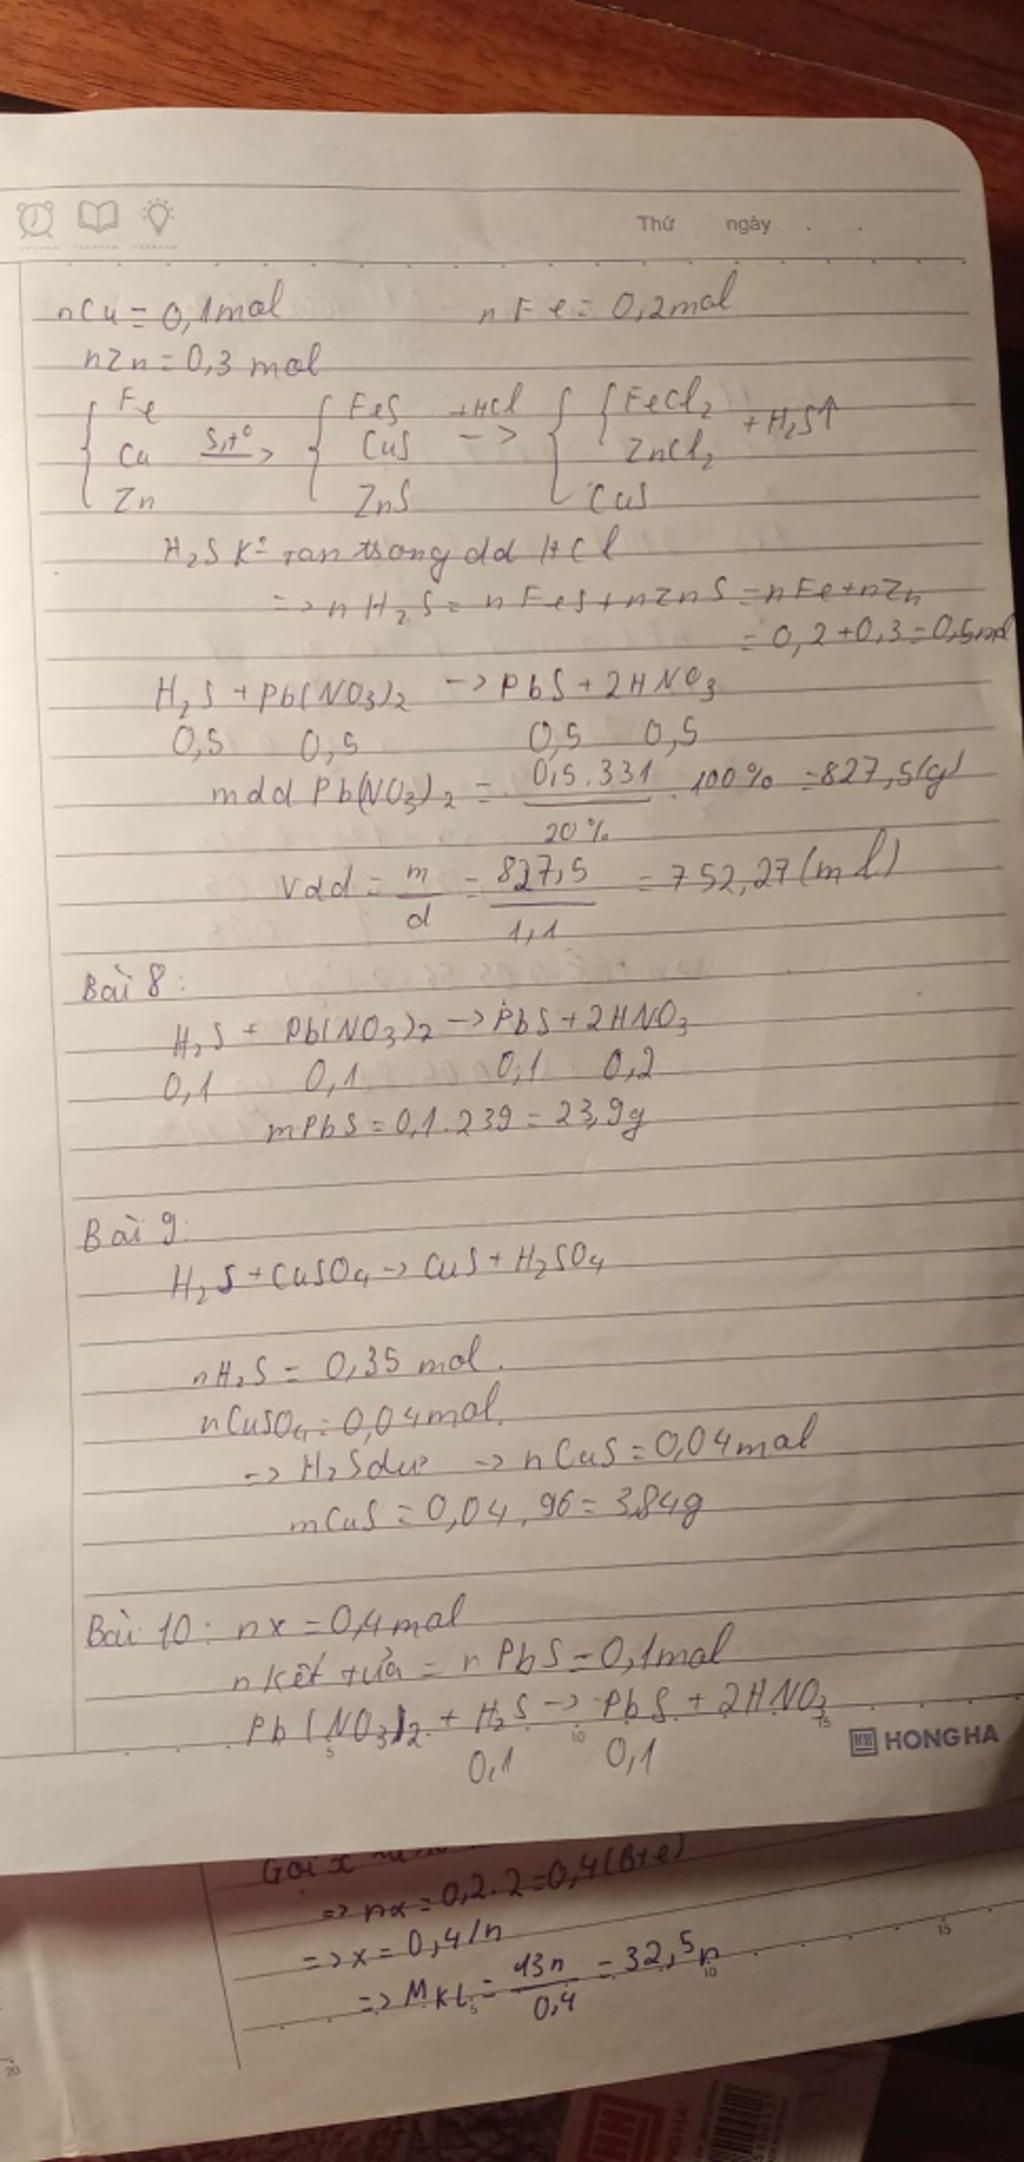 Thứ ngày . .
nCu = 0,1mol nFe = 0,2mol
nZn = 0,3 mol
Fe FeS +HCl FeCl2
Cu S,t° -> CuS -> ZnCl2 + H2S↑
Zn ZnS CuS
H2S K° tan trong dd HCl
=> nH2S = nFeS + nZnS = nFe + nZn
= 0,2 + 0,3 = 0,5mol
H2S + Pb(NO3)2 -> PbS + 2HNO3
0,5 0,5 0,5 0,5
mdd Pb(NO3)2 = 0,5.331 / 20% . 100% = 827,5(g)
Vdd = m/d = 827,5 / 1,1 = 752,27(ml)
Bài 8:
H2S + Pb(NO3)2 -> PbS + 2HNO3
0,1 0,1 0,1 0,2
mPbS = 0,1.239 = 23,9g
Bài 9:
H2S + CuSO4 -> CuS + H2SO4
nH2S = 0,35 mol.
nCuSO4 = 0,04mol.
=> H2S dư -> nCuS = 0,04mol
mCuS = 0,04.96 = 3,84g
Bài 10: nx = 0,4mol
n kết tủa = nPbS = 0,1mol
Pb(NO3)2 + H2S -> PbS + 2HNO3
5 10 15
0,1 0,1
HONG HA
Gọi x
=> nx = 0,2.2 = 0,4(B+e)
=> x = 0,4/n
=> MKL = 13n / 0,4 = 32,5n
5 10 15
20